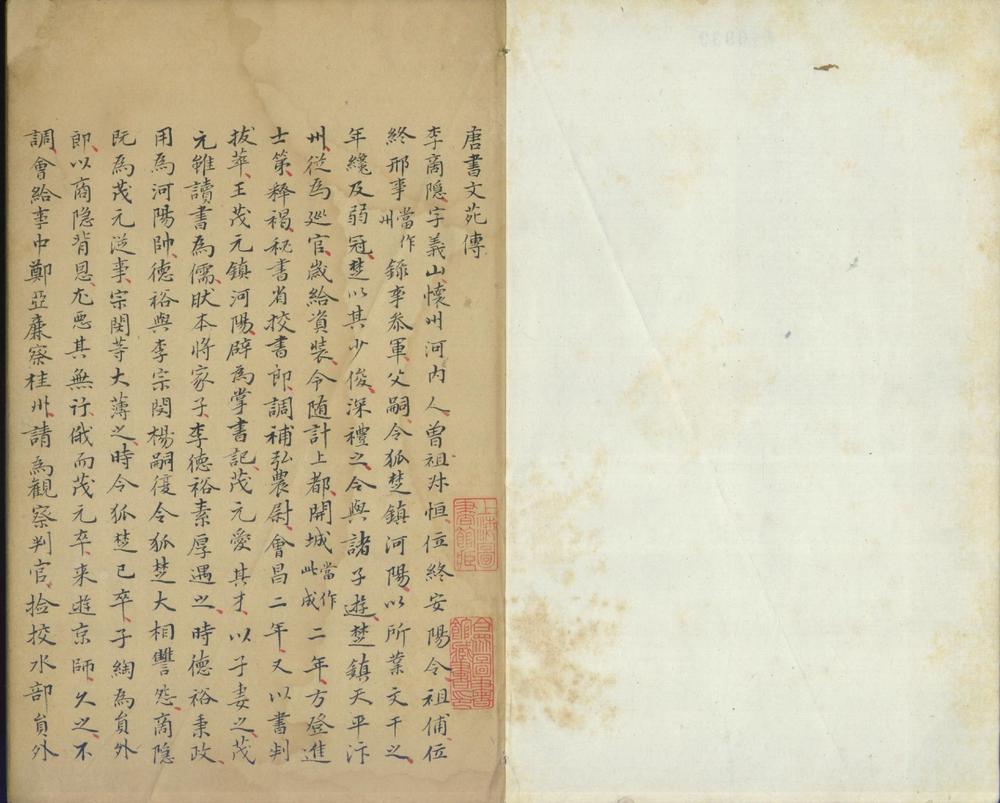 唐書文苑傳
李商隱字義山懷州河内人曽祖叔恒位終安陽令祖俌位
終邢事當作州錄事叅軍父嗣令狐楚鎮河陽以所業文干之
年纔及弱冠楚以其少俊深禮之令與諸子遊楚鎮天平汴
州從爲廵官歲給資裝令随計上都開城當作成此二年方登進
士第釋褐秘書省挍書郎調補弘農尉會昌二年又以書判
拔萃王茂元鎮河陽辟爲掌書記茂元愛其才以子妻之茂
元雖讀書爲儒然本将家子李德裕素厚遇之時德裕秉政
用爲河陽帥德裕與李宗閔楊嗣復令狐楚大相讐怨商隱
既爲茂元從事宗閔䓁大薄之時令狐楚已卒子綯爲負外
郎以商隱背恩尤惡其無行俄而茂元卒来遊京師久之不
調會給事中鄭亞廉察桂州請爲觀察判官撿挍水部負外
上海圖書館藏
合眾圖書館藏書印